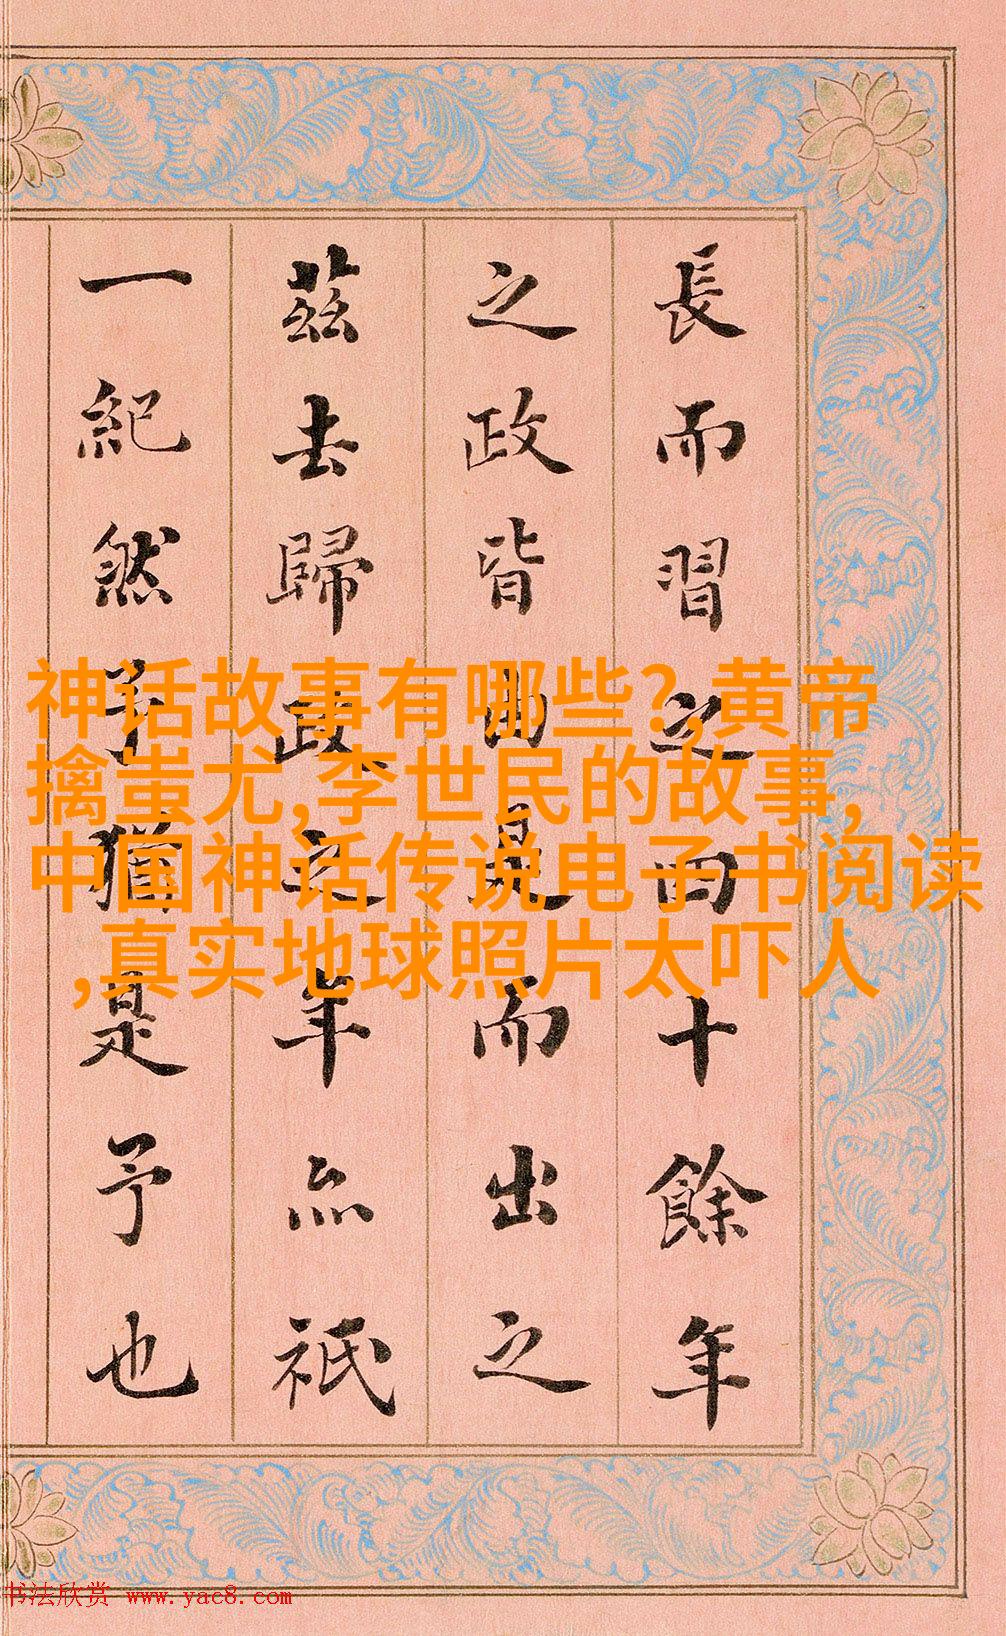 長而習之四十餘年
之政皆由是而出之
茲去歸政之年亦祇
一紀然予猶是予也
神话故事有哪些?,黄帝
擒蚩尤,李世民的故事,
中国神话传说电子书阅读
,真实地球照片太吓人
书法欣赏 www.yac8.com